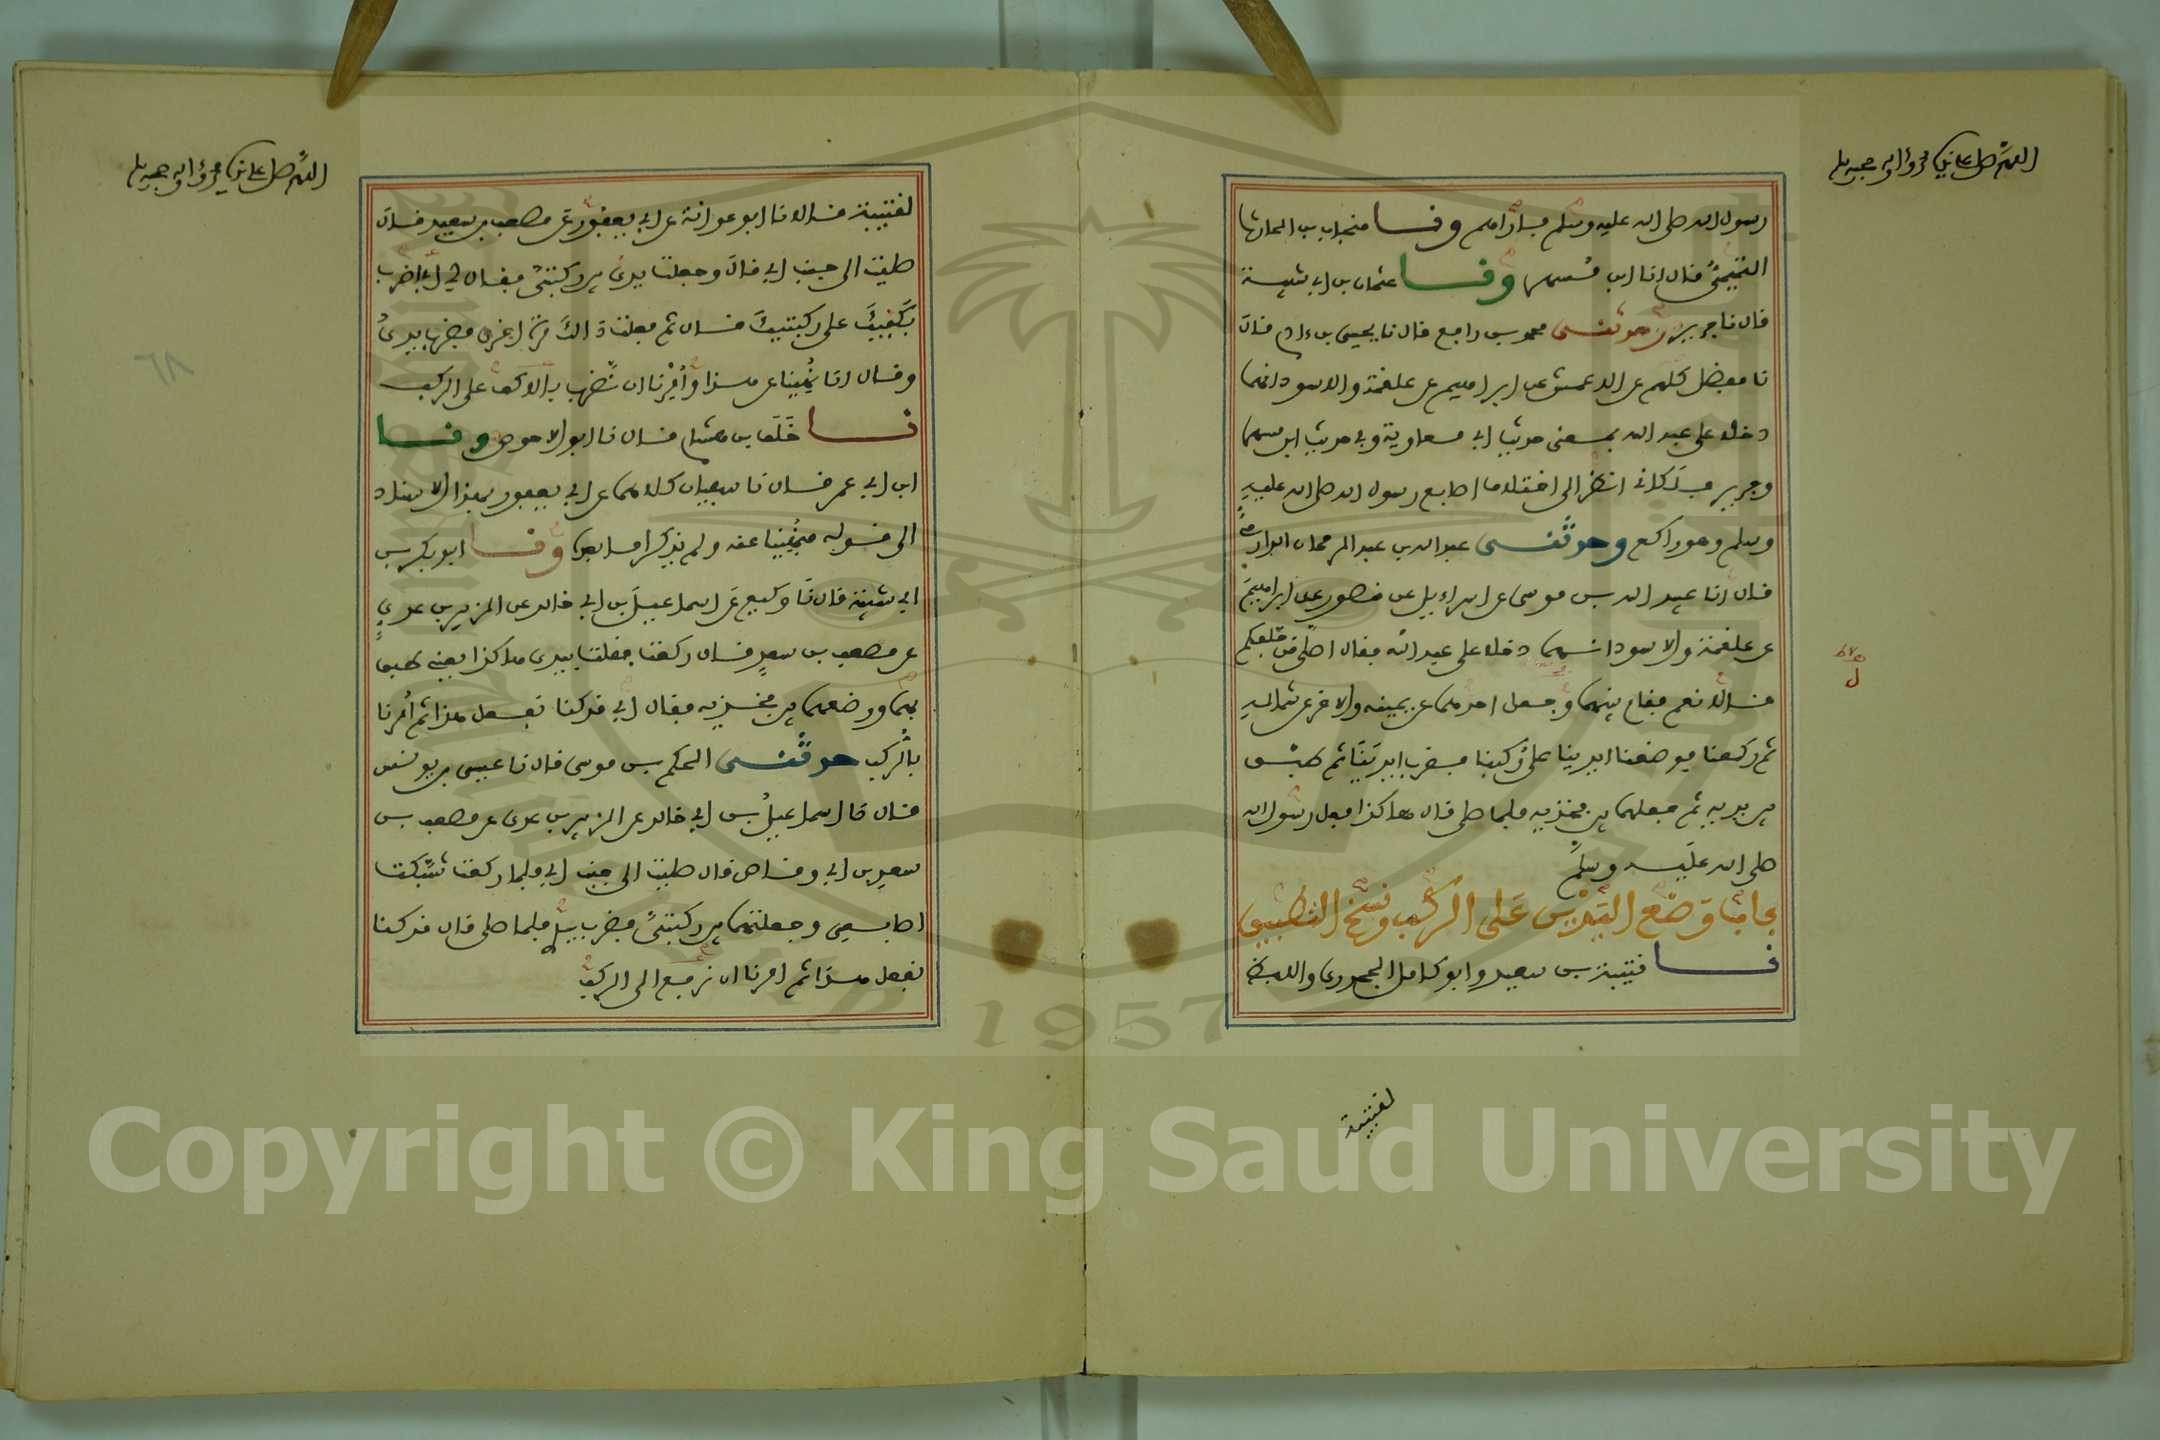 اللهم صل على سيدنا محمد وآله وصحبه وسلم
رسول الله صلى الله عليه وسلم فأراهم ونا منجاب بن الحارث
التميمي قال انا ابن مسهر ونا عثمان بن ابي شيبة
قال نا جرير وحدثني محمد بن رافع قال نا يحيى بن ءادم قال
نا مفضل كلهم عن الاعمش عن ابراهيم عن علقمة والاسود انهما
دخلا على عبد الله بمعنى حديث ابي معاوية وفي حديث ابن مسهر
وجرير فلكاني انظر الى اختلاف اصابع رسول الله صلى الله عليه
وسلم وهو راكع وحدثني عبد الله بن عبد الرحمان الدارمي
قال انا عبيد الله بن موسى عن اسراءيل عن منصور عن ابراهيم
عن علقمة والاسود انهما دخلا على عبد الله فقال اصلى من خلفكم
قالا نعم فقام بينهما وجعل احدهما عن يمينه والاخر عن شماله
ثم ركعنا فوضعنا ايدينا على ركبنا فضرب ايدينا ثم طبق
بين يديه ثم جعلهما بين فخذيه فلما صلى قال هاكذا فعل رسول الله
صلى الله عليه وسلم
باب وضع اليدين على الركب ونسخ التطبيق
نا قتيبة بن سعيد وابو كامل الجحدري واللفظ
لقتيبة
اللهم صل على سيدنا محمد وآله وصحبه وسلم
لقتيبة قالا نا ابو عوانة عن ابي يعفور عن مصعب بن سعد قال
صليت الى جنب ابي قال وجعلت يدي بين ركبتي فقال لي ابي اضرب
بكفيك على ركبتيك قال ثم فعلت ذالك مرة اخرى فضرب يدي
وقال انا نهينا عن هذا وامرنا ان نضرب بالاكف على الركب
نا خلف بن هشام قال نا ابو الاحوص ونا
ابن ابي عمر قال نا سفيان كلاهما عن ابي يعفور بهذا الاسناد
الى قوله فنهينا عنه ولم يذكرا ما بعده ونا ابو بكر بن
ابي شيبة قال نا وكيع عن اسماعيل بن ابي خالد عن الزبير بن عدي
عن مصعب بن سعد قال ركعت فقلت بيدي هاكذا يعني طبق
بهما ووضعهما بين فخذيه فقال ابي قد كنا نفعل هذا ثم امرنا
بالركب حدثني الحكم بن موسى قال نا عيسى بن يونس
قال نا اسماعيل بن ابي خالد عن الزبير بن عدي عن مصعب بن
سعد بن ابي وقاص قال صليت الى جنب ابي فلما ركعت شبكت
اصابعي وجعلتهما بين ركبتي فضرب يدي فلما صلى قال قد كنا
نفعل هذا ثم امرنا ان نرفع الى الركب
٦٨
1957
Copyright © King Saud University